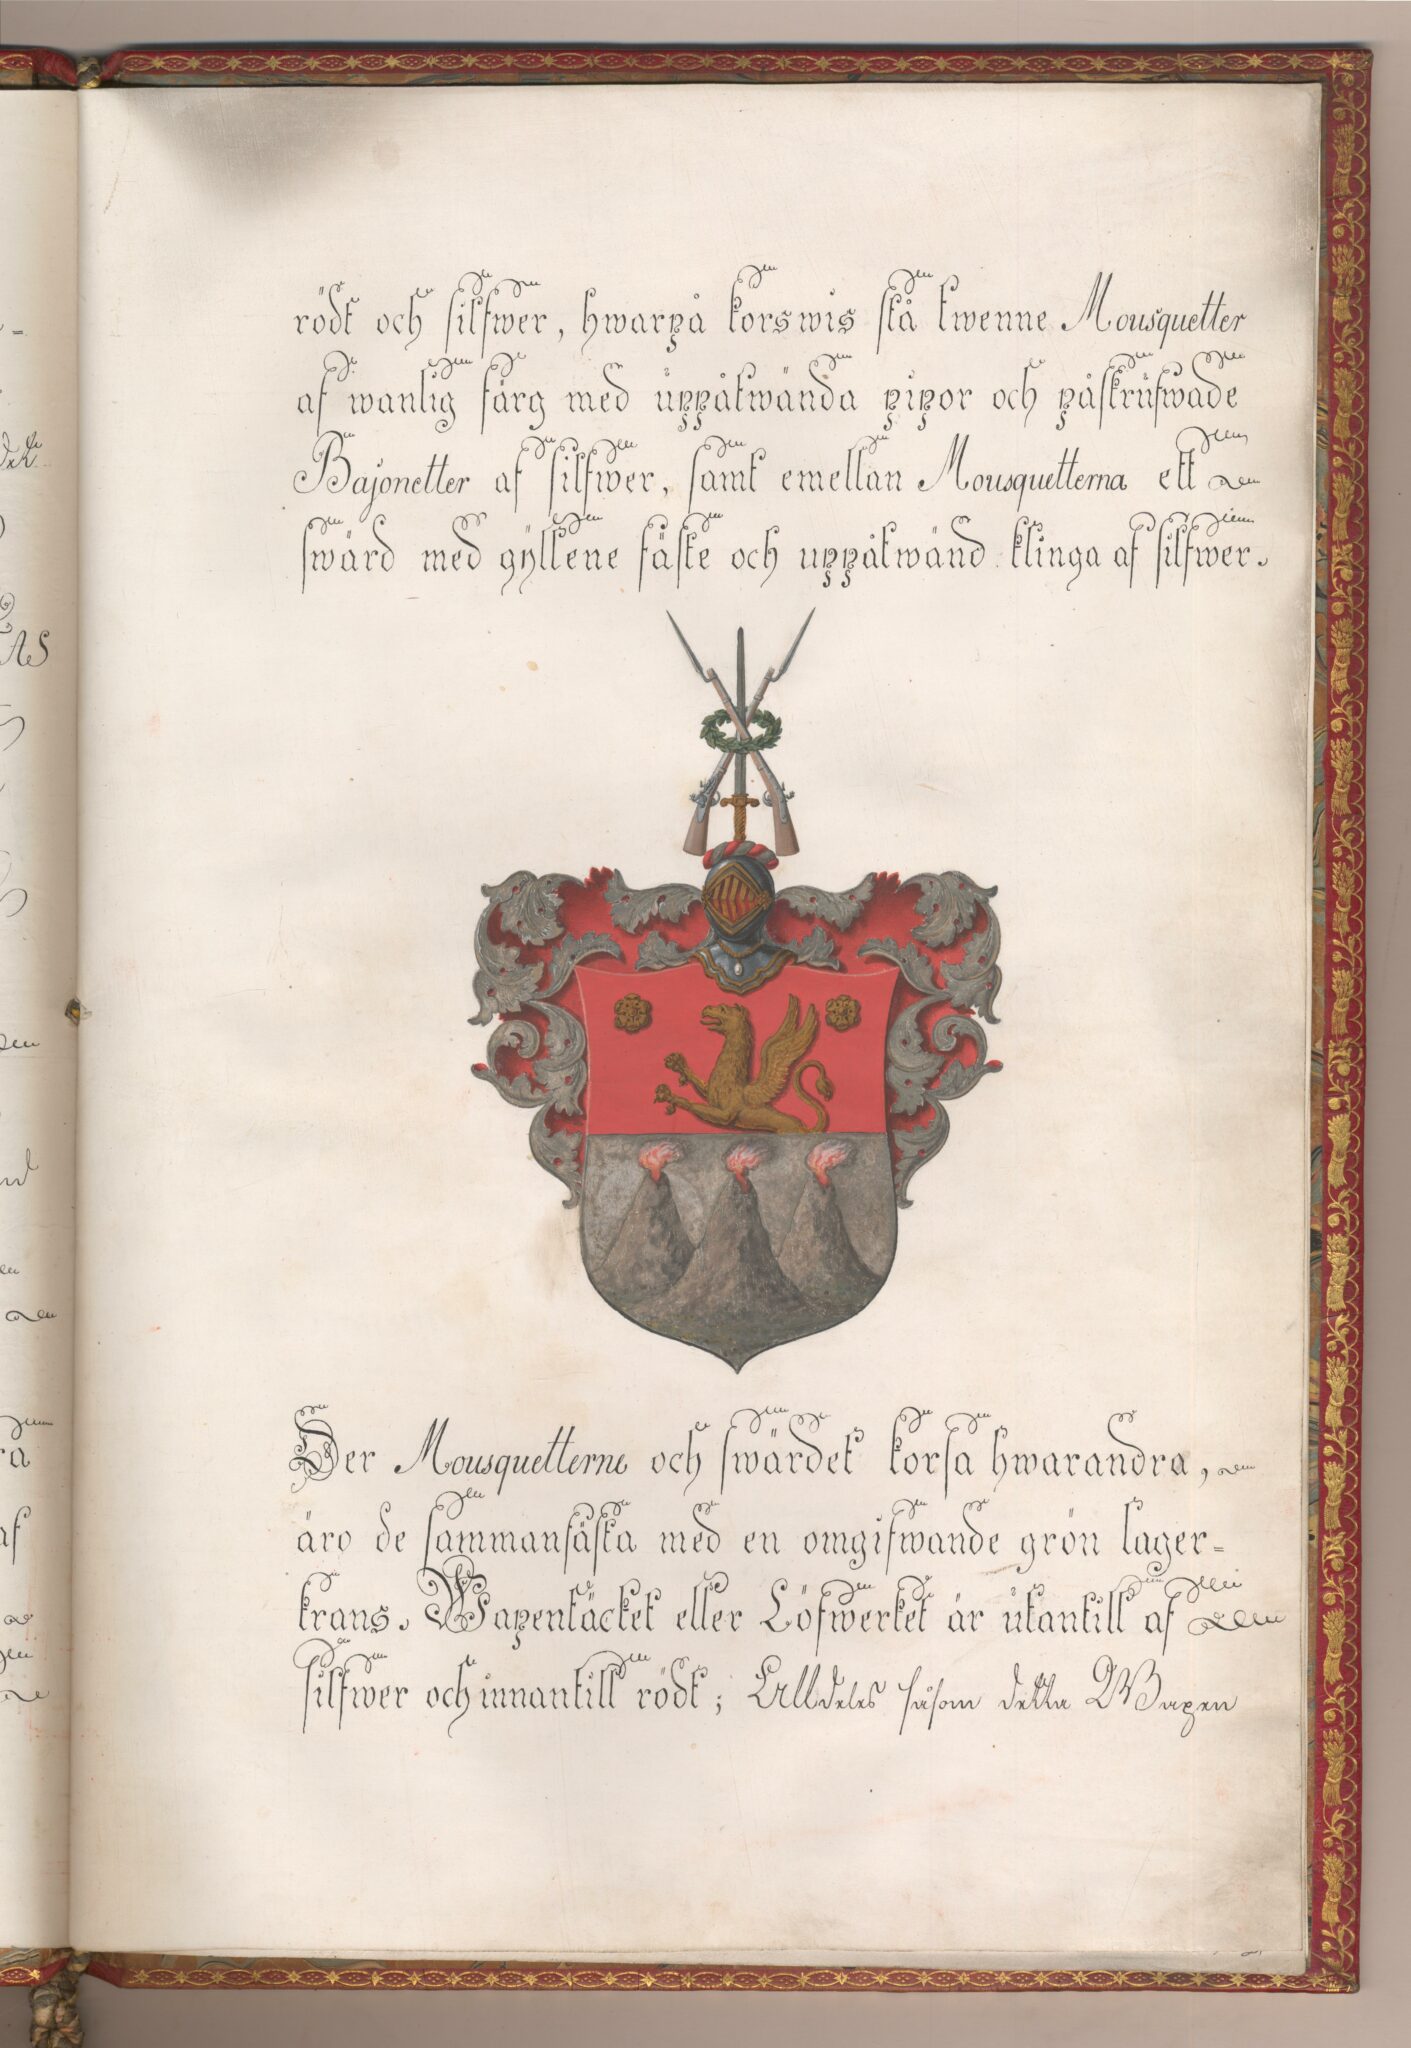 rödt och silfwer, hwarpå korswis stå twenne Mousquetter
af wanlig färg med uppåtwända pipor och påskrufwade
Bajonetter af silfwer, samt emellan Mousquetterna ett
swärd med gyllene fäste och uppåtwänd klinga af silfwer.
Der Mousquetterne och swärdet korsa hwarandra,
äro de sammanfästa med en omgifwande grön lager-
krans. Wapentäcket eller Löfwerket är utantill af
silfwer och innantill rödt; Alldeles såsom detta Wapen